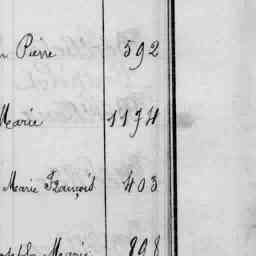 Pierre 592
Marie 1194
Marie François 403
Marie 898